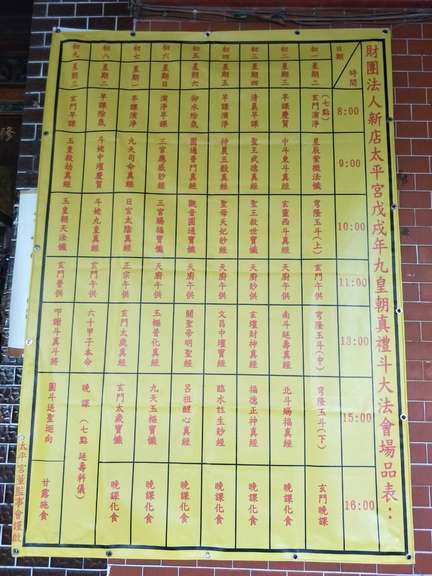 財團法人新店太平宮戊戌年九皇朝真禮斗大法會場品表..
日期
時間
8:00
9:00
10:00
11:00
13:00
15:00
16:00
初一 星期二
(七點)
玄門灑淨
星辰紫微法懺
穹隆玉斗(上)
玄門午供
穹隆玉斗(中)
穹隆玉斗(下)
玄門晚課
初二 星期三
早課慶賀
中斗東斗真經
玄靈西斗真經
天廚午供
南斗延壽真經
北斗賜福真經
晚課化食
初三 星期四
清真早課
聖王武德真經
聖王救世寶懺
天廚妙供
玄壇財神真經
福德正神真經
晚課化食
初四 星期五
早課灑淨
神農五穀真經
聖母天妃妙經
天廚午供
文昌中壇寶經
臨水性生妙經
晚課化食
初五 星期六
柳水除氛
圓通普門真經
觀音圓通寶懺
天廚午供
關聖帝明聖經
呂祖醒心真經
晚課化食
初六 星期日
灑淨早課
三官應感妙經
三官賜福寶懺
天廚午供
玉樞普化真經
九天玉樞寶懺
晚課化食
初七 星期一
早課灑淨
九天司命真經
日宮太陰真經
正宗午供
玄門太歲真經
玄門太歲寶懺
晚課化食
初八 星期二
早課除氛
斗姥中壇慶賀
斗姥九皇真經
玄門午供
六十甲子本命
晚課(七點 延壽科儀)
初九 星期三
玄門早課
玉皇救劫真經
玉皇朝天法懺
玄門普供
叩謝斗真斗將
圓斗送聖迴向
甘露施食
◎太平宮董監事會謹啟